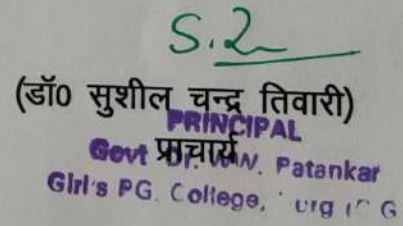 (डॉ0 सुशील चन्द्र तिवारी)
PRINCIPAL
प्राचार्य
Govt Dr. W.W. Patankar
Girl's PG. College, G